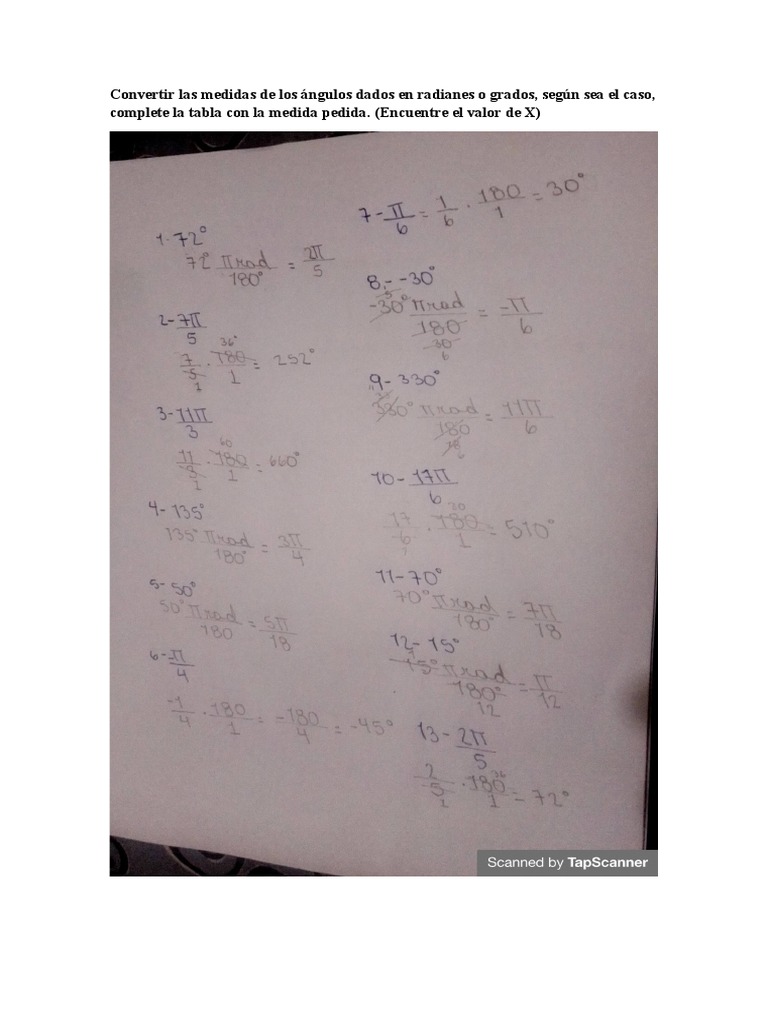 Convertir las medidas de los ángulos dados en radianes o grados, según sea el caso,
complete la tabla con la medida pedida. (Encuentre el valor de X)
1. 72°
72° πrad/180° = 2π/5
2- 7π/5
7/5 1 · 180 36°/1 = 252°
3- 11π/3
11/3 1 · 180 60/1 = 660°
4- 135°
135° πrad/180° = 3π/4
5- 50°
50° πrad/180 = 5π/18
6- -π/4
-1/4 · 180/1 = -180/4 = -45°
7- π/6 = 1/6 · 180/1 = 30°
8.- -30°
-30° πrad/180 30 6 = -π/6
9- 330°
330° πrad/180 18 6 = 11π/6
10- 17π/6
17/6 · 180 30/1 = 510°
11- 70°
70° πrad/180° = 7π/18
12- 15°
15° 1 πrad/180° 12 = π/12
13- 2π/5
2/5 1 · 180 36/1 = 72°
Scanned by TapScanner